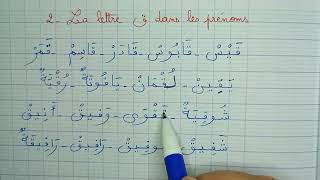 2_ La lettre ق dans les prénoms
قَيْس - قَابُوس - قَادَر - قَاسِم - قَمَر
يَقِين - لُقْمَانْ - يَاقُوتَةٌ - رُقْيَةٌ
شَوقِيَةٌ - تَقْوَى - وَفِيقْ - أَنِيقْ
شَفِيقْ - تَوفِيقْ - رَافِيقْ - رَافِيقَةٌ